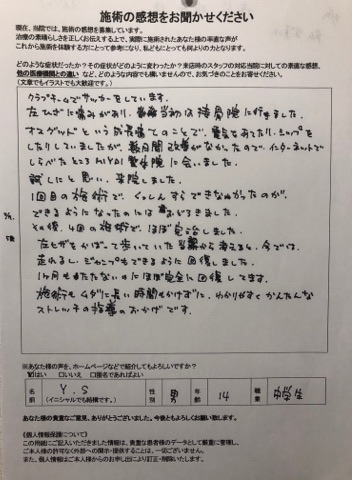 施術の感想をお聞かせください
現在、当院では、施術の感想を募集しています。
治療の素晴らしさを正しくお伝えする上で、実際に施術されたあなた様の率直な声が
これから施術を体験する方にとって参考になり、私どもにとっても何よりの力となります。
どのような症状だったか？その症状がどのように変わったか？来店時のスタッフの対応当院に対しての素直な感想、
他の医療機関との違いなど、どのような内容でも構いませんので、お気づきのことをお書せください。
（文章でもイラストでも大歓迎です。）
クラブチームでサッカーをしています。
左ひざに痛みがあり、当初は接骨院に行きました。
オスグッドという成長痛とのことで、電気をあてたり、シップを
したりしていましたが、数月間改善がなかったので、インターネットで
しらべたところMIYAI整体院に会いました。
試しにと思い、来院しました。
1回目の施術で、くっしんすらできなかったのが、
できるようになったのにはおどろきました。
その後、4回の施術で、ほぼ完治しました。
左ヒザをかばって歩いていた 考えると、今では、
走れるし、ジャンプもできるように回復しました。
1ヶ月もたたないのにほぼ完全に回復してます。
施術もムダに長い時間もかけずに、わかりやすくかんたんな
ストレッチの指導のおかげです。
※あなた様の声を、ホームページなどで紹介してもよろしいですか？
☑はい □いいえ □匿名であればよい
名前 Y.S （イニシャルでも結構です。） 性別 男 年齢 14 職業 中学生
あなた様の貴重なご意見、ありがとうございました。今後ともよろしくお願い致します。
《個人情報保護について》
この用紙にご記入いただきました情報は、貴重な患者様のデータとして厳重に管理し、
ご本人様の許可なく外部への開示・提供することは、一切ございません。
また、個人情報はご本人様からのお申し出により訂正・削除いたします。